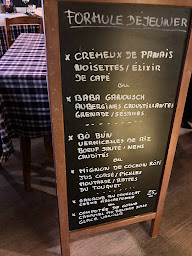 FORMULE DÉJEUNER
* CRÉMEUX DE PANAIS
NOISETTES / ELIXIR
DE CAFÉ
OU
* BABA GANOUSCH
AUBERGINES CROUSTILLANTES
GRENADE / SÉSAMES
* BÒ BÚN
VERMICELLES DE RIZ
BOEUF SAUTÉ / NEMS
CRUDITÉS
OU
* MIGNON DE COCHON RÔTI
JUS CORSÉ / PICKLES
MOUTARDE / RATTES
DU TOUQUET
CHOCOLAT
OU
* COMPOTÉE DE
GLACE VANILLE